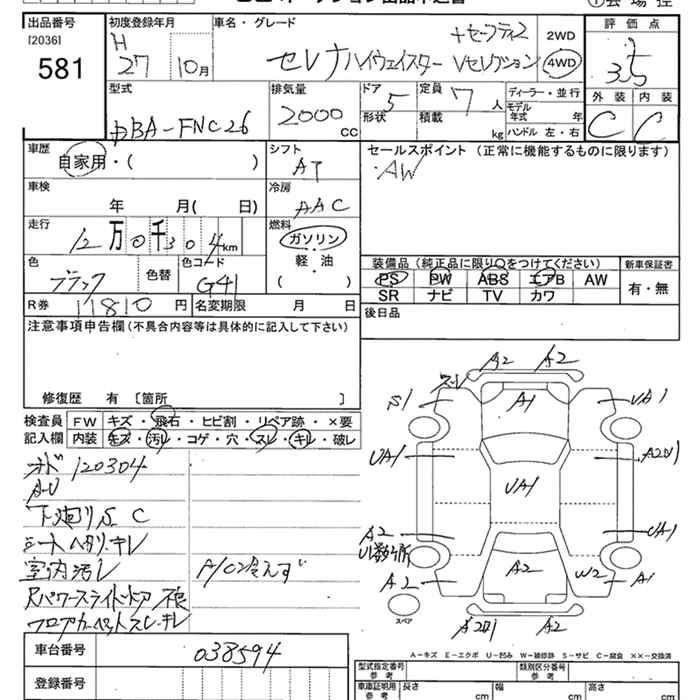 出品番号 初度登録年月 車名・グレード 評価点
[2036] H 27 10月 セレナハイウェイスター Vセレクション +セーフティ2 2WD 4WD 3.5
581
型式 排気量 ドア 定員 ディーラー・並行 外装 内装
DBA-FNC26 2000 CC 5 7 人 モデル年式 年 C C
形状 積載 kg ハンドル 左・右
車歴 シフト セールスポイント (正常に機能するものに限ります)
自家用・( ) AT ・AW
車検 冷房
年 月( 日) AAC
走行 燃料
12万0千304km ガソリン
色 色コード 軽・油 装備品(純正品に限り○をつけてください) 新車保証書
ブラック 色替 G41 ( ) PS PW ABS エアB AW 有・無
SR ナビ TV カワ
R券 11810 円 名変期限 月 日 後日品
注意事項申告欄(不具合内容等は具体的に記入して下さい)
修復歴 有 〔箇所 〕
検査員 FW キズ・飛石・ヒビ割・リペア跡・×要
記入欄 内装 キズ・汚レ・コゲ・穴・スレ・キレ・破レ
オド120304
A-U
下廻りS C
シートヘタリ・キレ
室内汚レ A/C冷えず
Rパワースライドドア不良
フロアカーペットスレ・キレ
A2 A2
スレ
S1 A1 UA1
UA1 A2U1
UA1
A2 UA1
U1数ヶ所
A2 A2 W2 A1
スペア
A2U1 A2
A-キズ E-エクボ U-凹み W-補修跡 S-サビ C-腐食 ××-交換済
車台番号 038594
登録番号
型式指定番号 参考 類別区分番号 参考
車庫証明用 参考 長さ cm 幅 cm 高さ cm